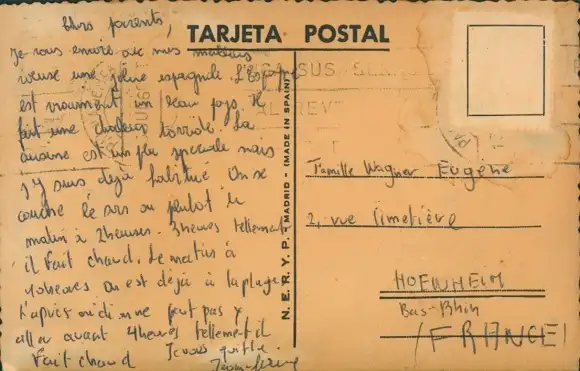 TARJETA POSTAL
Chers parents,
Je vous envoie avec mes
une jolie espagnole. L'Espagne
est vraiment un beau pays. Il
fait une chaleur torride. La
cuisine est un peu speciale mais
j'y suis déjà habitué. On se
couche le soir ou plutot le
matin à 2heures. 3heures tellement
il fait chaud. Le matin à
10heures on est déjà à la plage
L'après midi on ne peut pas y
aller avant 4heures tellement il
fait chaud Je vous quitte.
N. E. R. Y. P. - MADRID - (MADE IN SPAIN)
Famille Wagner Eugène
2, rue Cimetière
HOENHEIM
Bas-Rhin
(FRANCE)